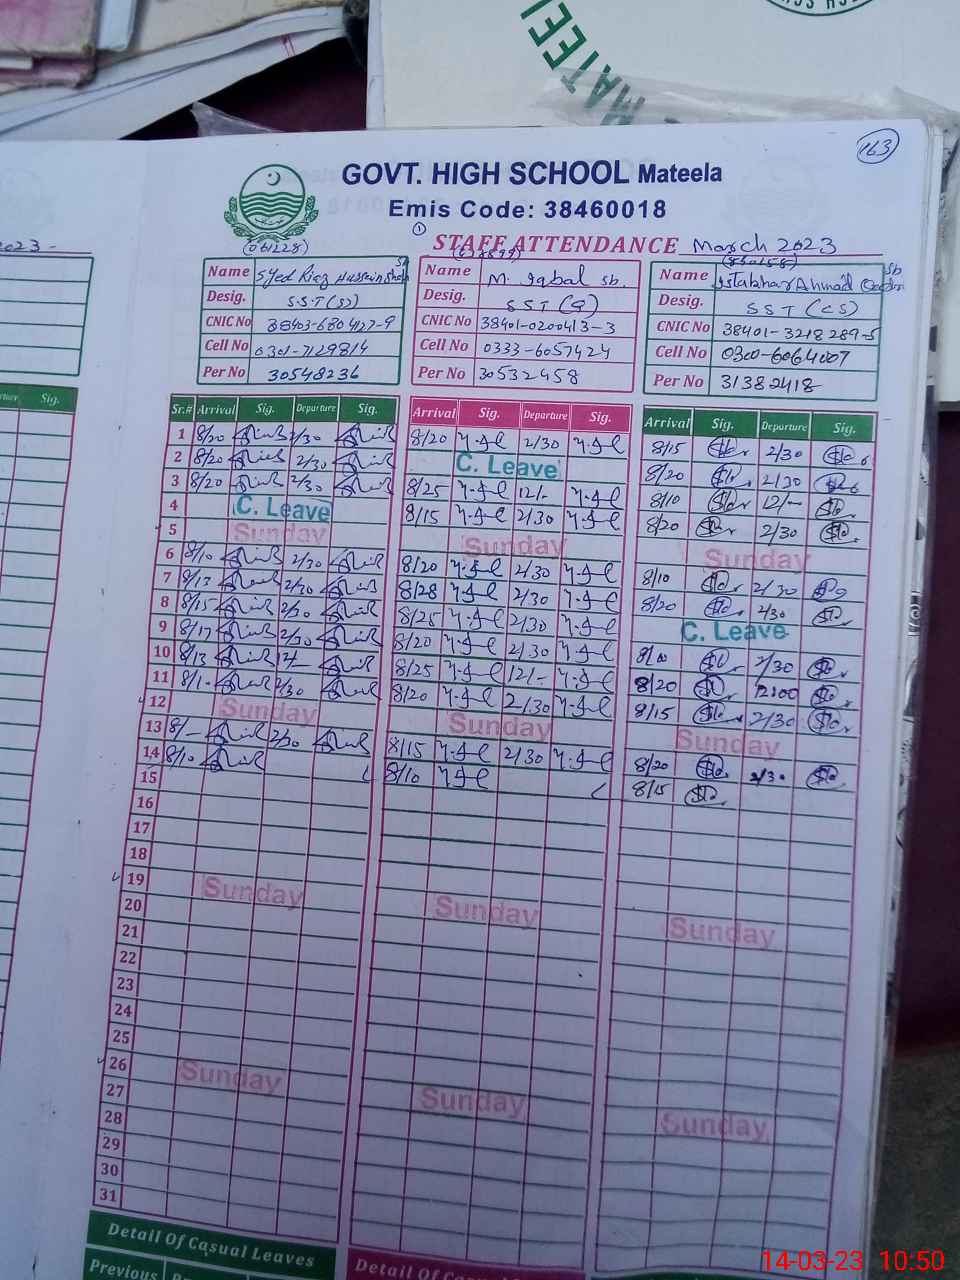 MATEEL
163
GOVT. HIGH SCHOOL Mateela
Emis Code: 38460018
STAFF ATTENDANCE March 2023
2023-
(061228)
Name Syed Riaz Hussain Shah
Desig. S.S.T (SS)
CNIC No 38403-6804127-9
Cell No 0301-7129814
Per No 30548236
Name M. Iqbal Sb.
Desig. SST (G)
CNIC No 38401-0200413-3
Cell No 0333-6057424
Per No 30532458
Name Ahmad Sb
Desig. SST (CS)
CNIC No 38401-3218289-5
Cell No 0300-6064007
Per No 31382418
Sig.
Sr.# Arrival Sig. Departure Sig. Arrival Sig. Departure Sig. Arrival Sig. Departure Sig.
1 8/20 2/30 8/20 2/30 8/15 2/30
2 8/20 2/30 C. Leave 8/20 2/30
3 8/20 2/30 8/25 12/- 8/10 12/-
4 C. Leave 8/15 2/30 8/20 2/30
5 Sunday Sunday Sunday
6 8/10 2/30 8/20 2/30 8/10 2/30
7 8/13 2/30 8/28 2/30 8/20 2/30
8 8/15 2/30 8/25 2/30 C. Leave
9 8/17 2/30 8/20 2/30 2/30
10 8/13 12/- 8/25 12/- 8/20 12/00
11 2/30 8/20 2/30 8/15 2/30
12 Sunday Sunday Sunday
13 8/- 2/30 8/15 2/30 8/20 2/30
14 8/10 8/10 8/15
15
16
17
18
19 Sunday Sunday Sunday
20
21
22
23
24
25
26 Sunday Sunday Sunday
27
28
29
30
31
Detail Of Casual Leaves
Detail Of Casual
Previous
14-03-23 10:50